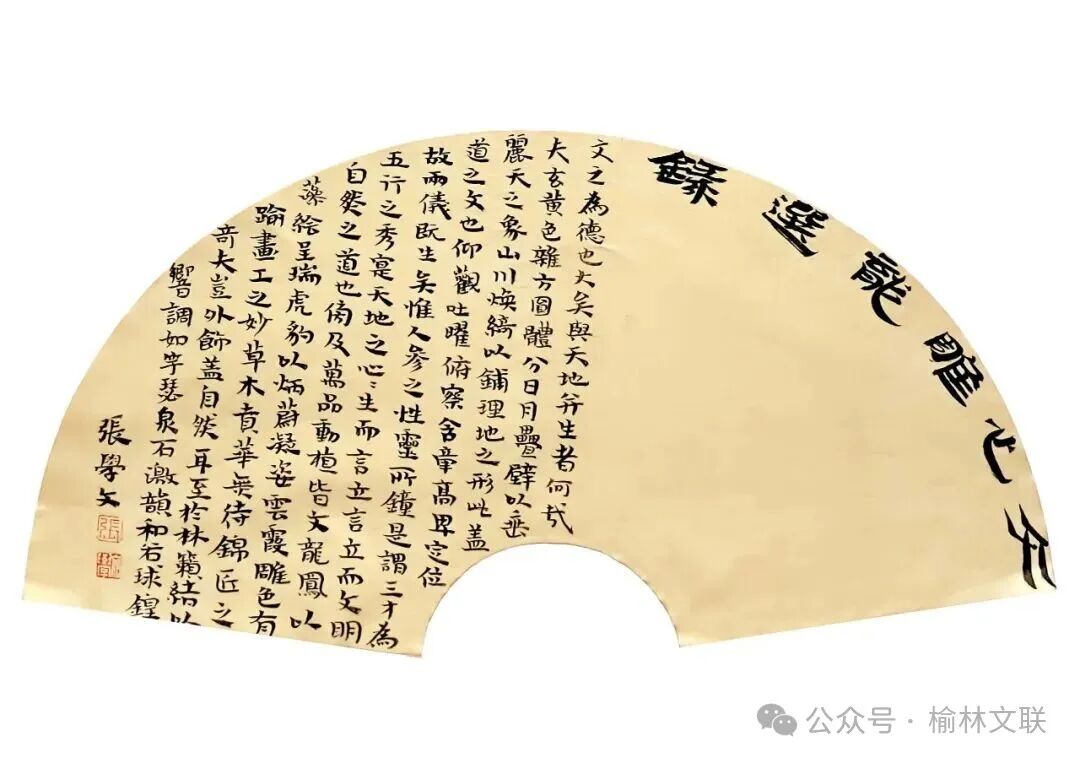 文心雕龍選錄
文之為德也大矣與天地并生者何哉
夫玄黃色雜方圓體分日月疊璧以垂
麗天之象山川煥綺以鋪理地之形此蓋
道之文也仰觀吐曜俯察含章高卑定位
故兩儀既生矣惟人參之性靈所鐘是謂三才為
五行之秀寔天地之心〻生而言立言立而文明
自然之道也傍及萬品動植皆文龍鳳以
藻繪呈瑞虎豹以炳蔚凝姿雲霞雕色有
踰畫工之妙草木賁華無待錦匠之
奇夫豈外飾蓋自然耳至於林籟結以
響調如竽瑟泉石激韻和若球鍠
張學文
公众号·榆林文联